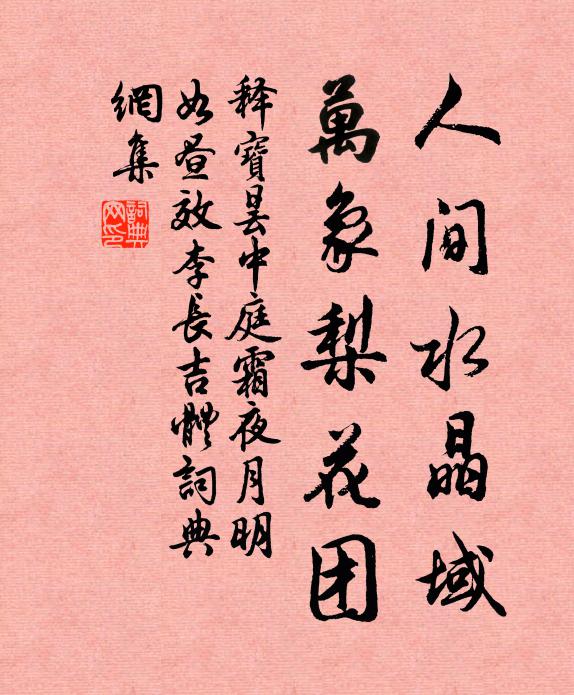 人间水晶域
萬象梨花团
释寶昙中庭霜夜月明
如昼效李長吉體詞典
網集
詞典網印